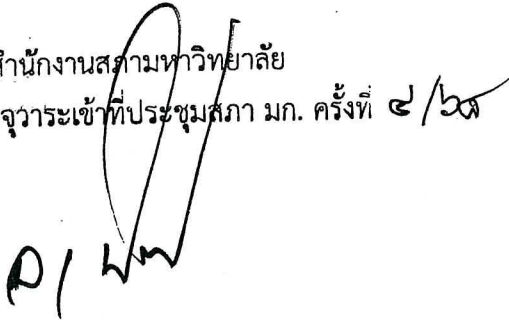 สำนักงานสภามหาวิทยาลัย
จุวาระเข้าที่ประชุมสภา มก. ครั้งที่ ๔/๖๘